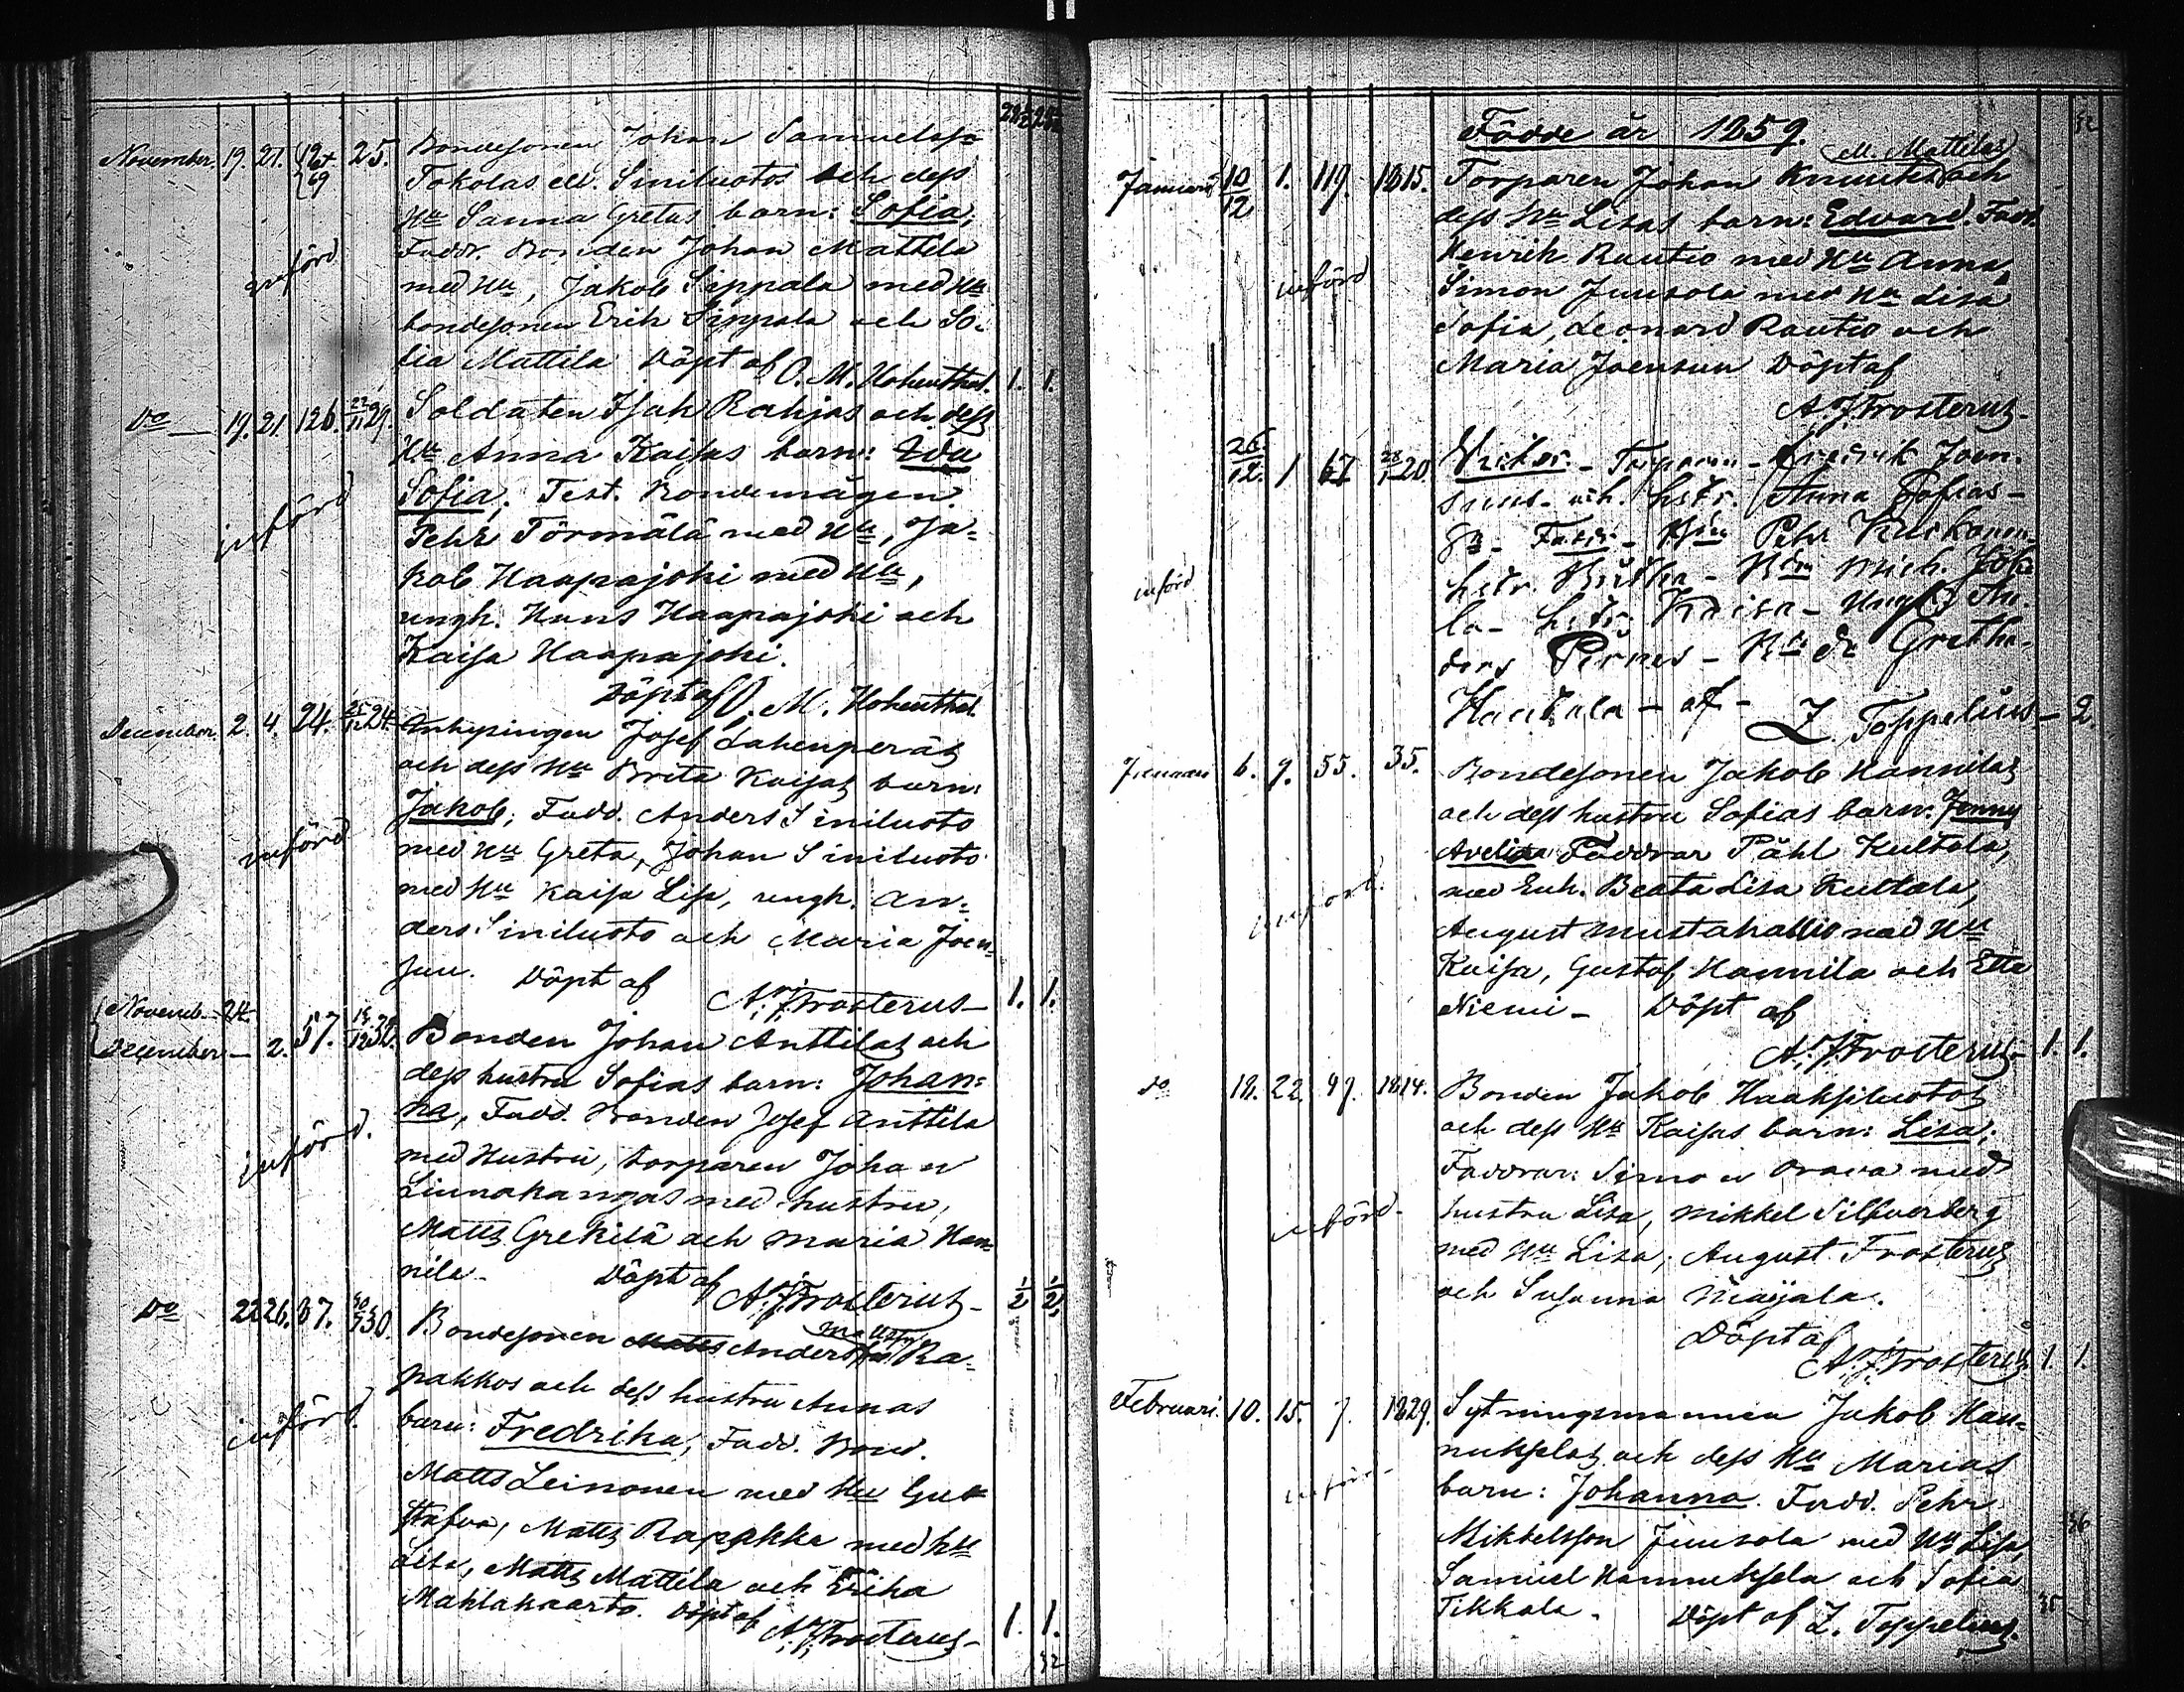 November. 19. 21. 25. Bondesonen Johan Samuelss=
Tokolas M. Siniluotos och dess
Hu Sanna Gretas barn: Sofia,
Fadd. Bonden Johan Mattila
införd med Hu, Jakob Sippala med Hu
bondesonen Erik Sippala och So-
fia Mattila Döpt af O. M. Hohenthal. 1. 1.
Do 19. 21. 126. 29. Soldaten Isak Rahjas och dess
Hu Anna Kaisas barn: Eva
Sofia, Test. Bondemågen
införd Pehr Törmälä med Hu, Ja-
kob Haapajoki med Hu,
ungk. Hans Haapajoki och
Kaisa Haapajoki.
Döpt af O. M. Hohenthal.
December. 2. 4. 24. 25/12 24. Inhysingen Josef Lahenperäs
och dess Hu Brita Kaisas barn:
Jakob, Fadd. Anders Siniluoto
införd med Hu Greta, Johan Siniluoto
med Hu Kaisa Lisa, ungk. An-
ders Siniluoto och Maria Joen-
suu. Döpt af A. J. Frosterus 1. 1.
Novemb. 24.
December 2. 57. 32. Bonden Johan Anttilas och
dess hustru Sofias barn: Johan=
na, Fadd. Bonden Josef Anttila
införd. med Hustru, torparen Johan
Linnakangas med hustru,
Matts Grekilä och Maria Han-
nila. Döpt af A. J. Frosterus 1/2 1/2
Do 22 26. 37. 30. Bondesonen Matts Anders Ra-
pakkos och dess hustru Annas
införd. barn: Fredrika, Fadd. Bond.
Matts Leinonen med Hu Gu
stafva, Matts Rapakko med hu
Lisa, Matts Mattila och Erika
Mahlakaarto. Döpt af A. J. Frosterus 1. 1.
32
Födde år 1859. 32
M. Mattilas
Januari 10/12 1. 119. 1815. Torparen Johan Knuutis och
dess Hu Lisas barn: Edvard. Fadd.
Henrik Rautio med Hu Anna,
införd Simon Juusola med Hu Lisa
Sofia, Leonard Rautio och
Maria Joensuu Döpt af
A. J. Frosterus
26/12. 1 67 28/1 20 Victor - Torparen - Fredrik Joen-
suus - och hstr. Anna Sofias -
Pehr Kuikonen
införd hstr. Mich. Joki
la - hstr. Kaisa -
Pernes - Gretha
Hautala - af - Z. Toppelius - 2.
Januari 6. 9. 55. 35. Bondesonen Jakob Hannilas
och dess hustru Sofias barn: Jenny
Avelina Faddrar Påhl Kultala,
införd. med Enk. Beata Lisa Kultala,
August Mustakallio med Hu
Kaisa, Gustaf Hannila och Etta
Niemi - Döpt af
A. J. Frosterus 1. 1.
do 18. 22. 97. 1814. Bonden Jakob Haaksiluotos
och dess Hu Kaisas barn: Lisa,
Faddrar: Simon Orava med
införd hustru Lisa, Mikkel Silfverberg
med Hu Lisa, August Frosterus
och Susanna Määjälä.
Döpt af
A. J. Frosterus 1. 1.
Februari. 10. 15. 7. 1829. Sytningsmannen Jakob Han-
nukselas och dess Hu Marias
införd barn: Johanna. Fadd. Pehr
Mikkelsson Juusola med Hu Lisa, 36
Samuel Hannuksela och Sofia
Tikkala. Döpt af Z. Toppelius. 35